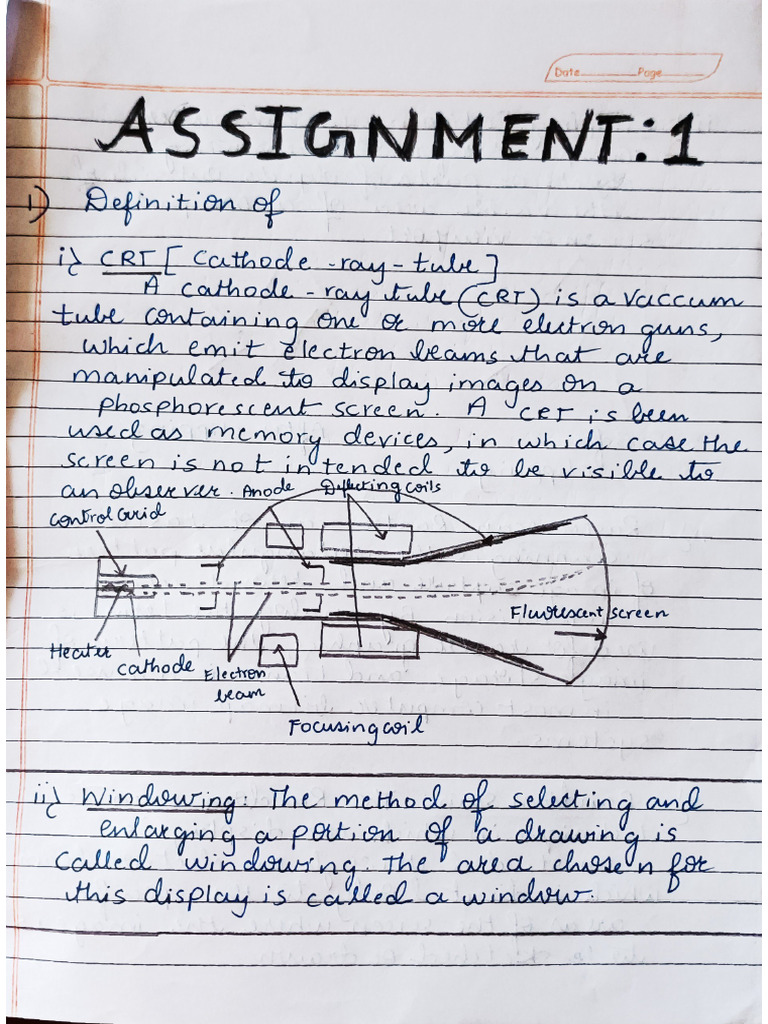 Date Page
ASSIGNMENT:1
1) Definition of
i) CRT [cathode-ray-tube]
A cathode-ray tube (CRT) is a vaccum
tube containing one or more electron guns,
which emit electron beams that are
manipulated to display images on a
phosphorescent screen. A CRT is been
used as memory devices, in which case the
screen is not intended to be visible to
an observer.
Anode Deflecting coils
Control Grid
Fluorescent screen
Heater
Cathode
Electron
beam
Focusing coil
ii) Windowing: The method of selecting and
enlarging a portion of a drawing is
called windowing. The area chosen for
this display is called a window.